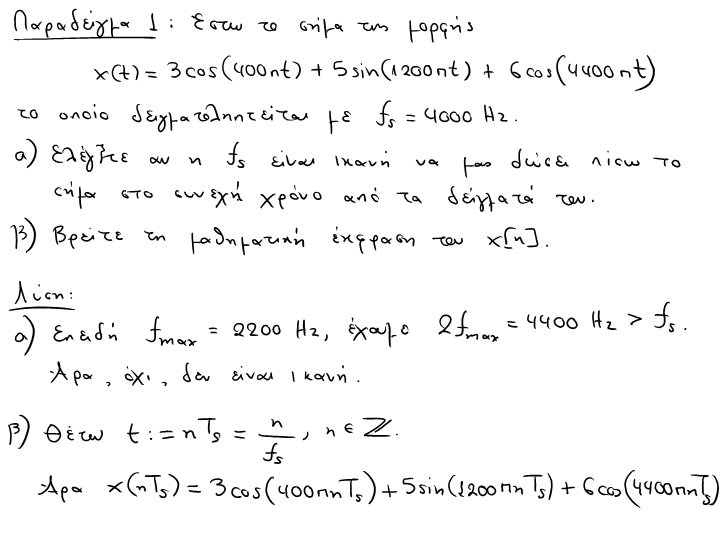 Παραδείγμα 1: Έστω το σήμα της μορφής
x(t) = 3cos(400πt) + 5sin(1200πt) + 6cos(4400πt)
το οποίο δειγματοληπτείται με fs = 4000 Hz.
α) Ελέγξτε αν η fs είναι ικανή να μας δώσει πίσω το
σήμα στο συνεχή χρόνο από τα δείγματά του.
β) Βρείτε τη μαθηματική έκφραση του x[n].
Λύση:
α) Επειδή fmax = 2200 Hz, έχουμε 2fmax = 4400 Hz > fs.
Άρα, όχι, δεν είναι ικανή.
β) Θέτω t := nTs = n/fs, n ∈ ℤ.
Άρα x(nTs) = 3cos(400πnTs) + 5sin(1200πnTs) + 6cos(4400πnTs)